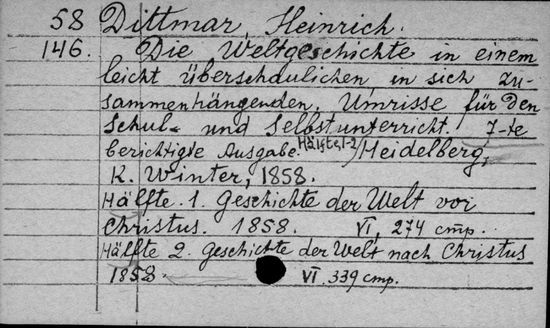 58 Dittmar, Heinrich.
146. Die Weltgeschichte in einem
leicht überschaulichen, in sich zu-
sammenhängenden, Umrisse für den
Schul- und Selbstunterricht. 7-te
berichtigte Ausgabe. Hälfte, 1-2/Heidelberg,
K. Winter, 1858.
Hälfte. 1. Geschichte der Welt vor
Christus. 1858. VI, 274 стр.
Hälfte 2. Geschichte der Welt nach Christus
1858. VI 339 стр.